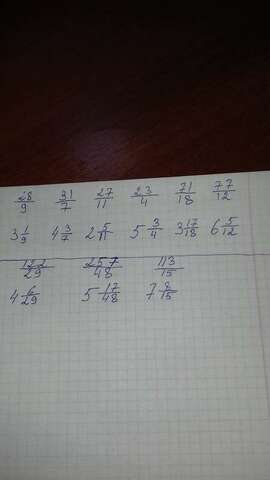 28/9 31/7 27/11 23/4 71/18 77/12
3 1/9 4 3/7 2 5/11 5 3/4 3 17/18 6 5/12
122/29 257/48 113/15
4 6/29 5 17/48 7 8/15